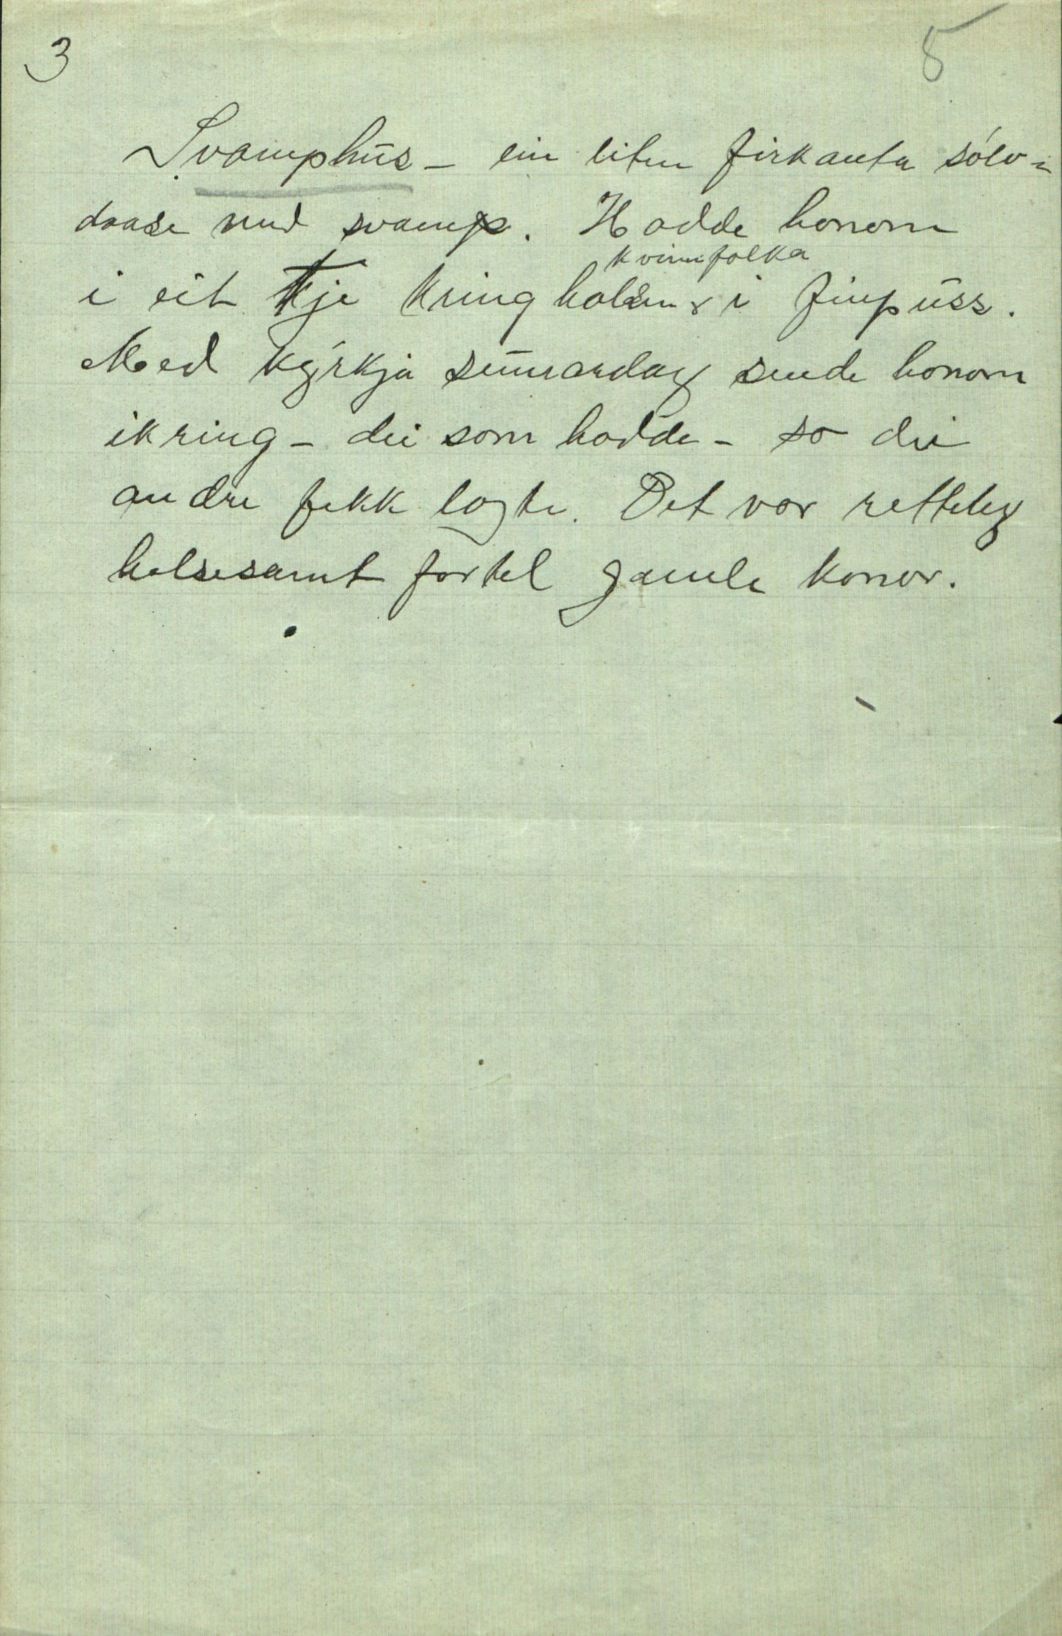 3 5
Svamphus – ein liten firkanta sølv-
daase med svamp. Hadde honom
kvinnfolka
i eit kje kring halsen i finpuss.
Med kyrkja sunnardag sende honom
ikring – dei som hadde – so dei
andre fekk logte. Det var retteleg
helsesamt fortel gamle konor.